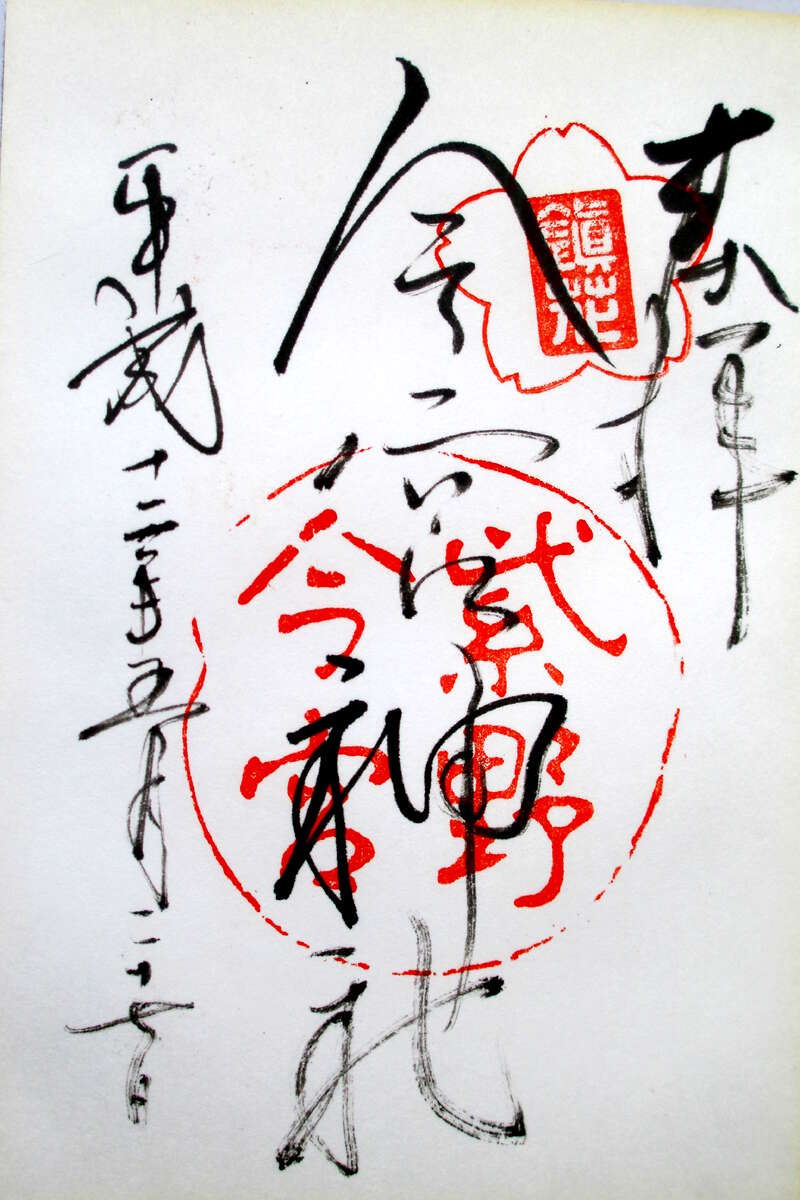 奉拝
鎮花
今宮神社
紫野
今宮
平成十二年五月二十七日